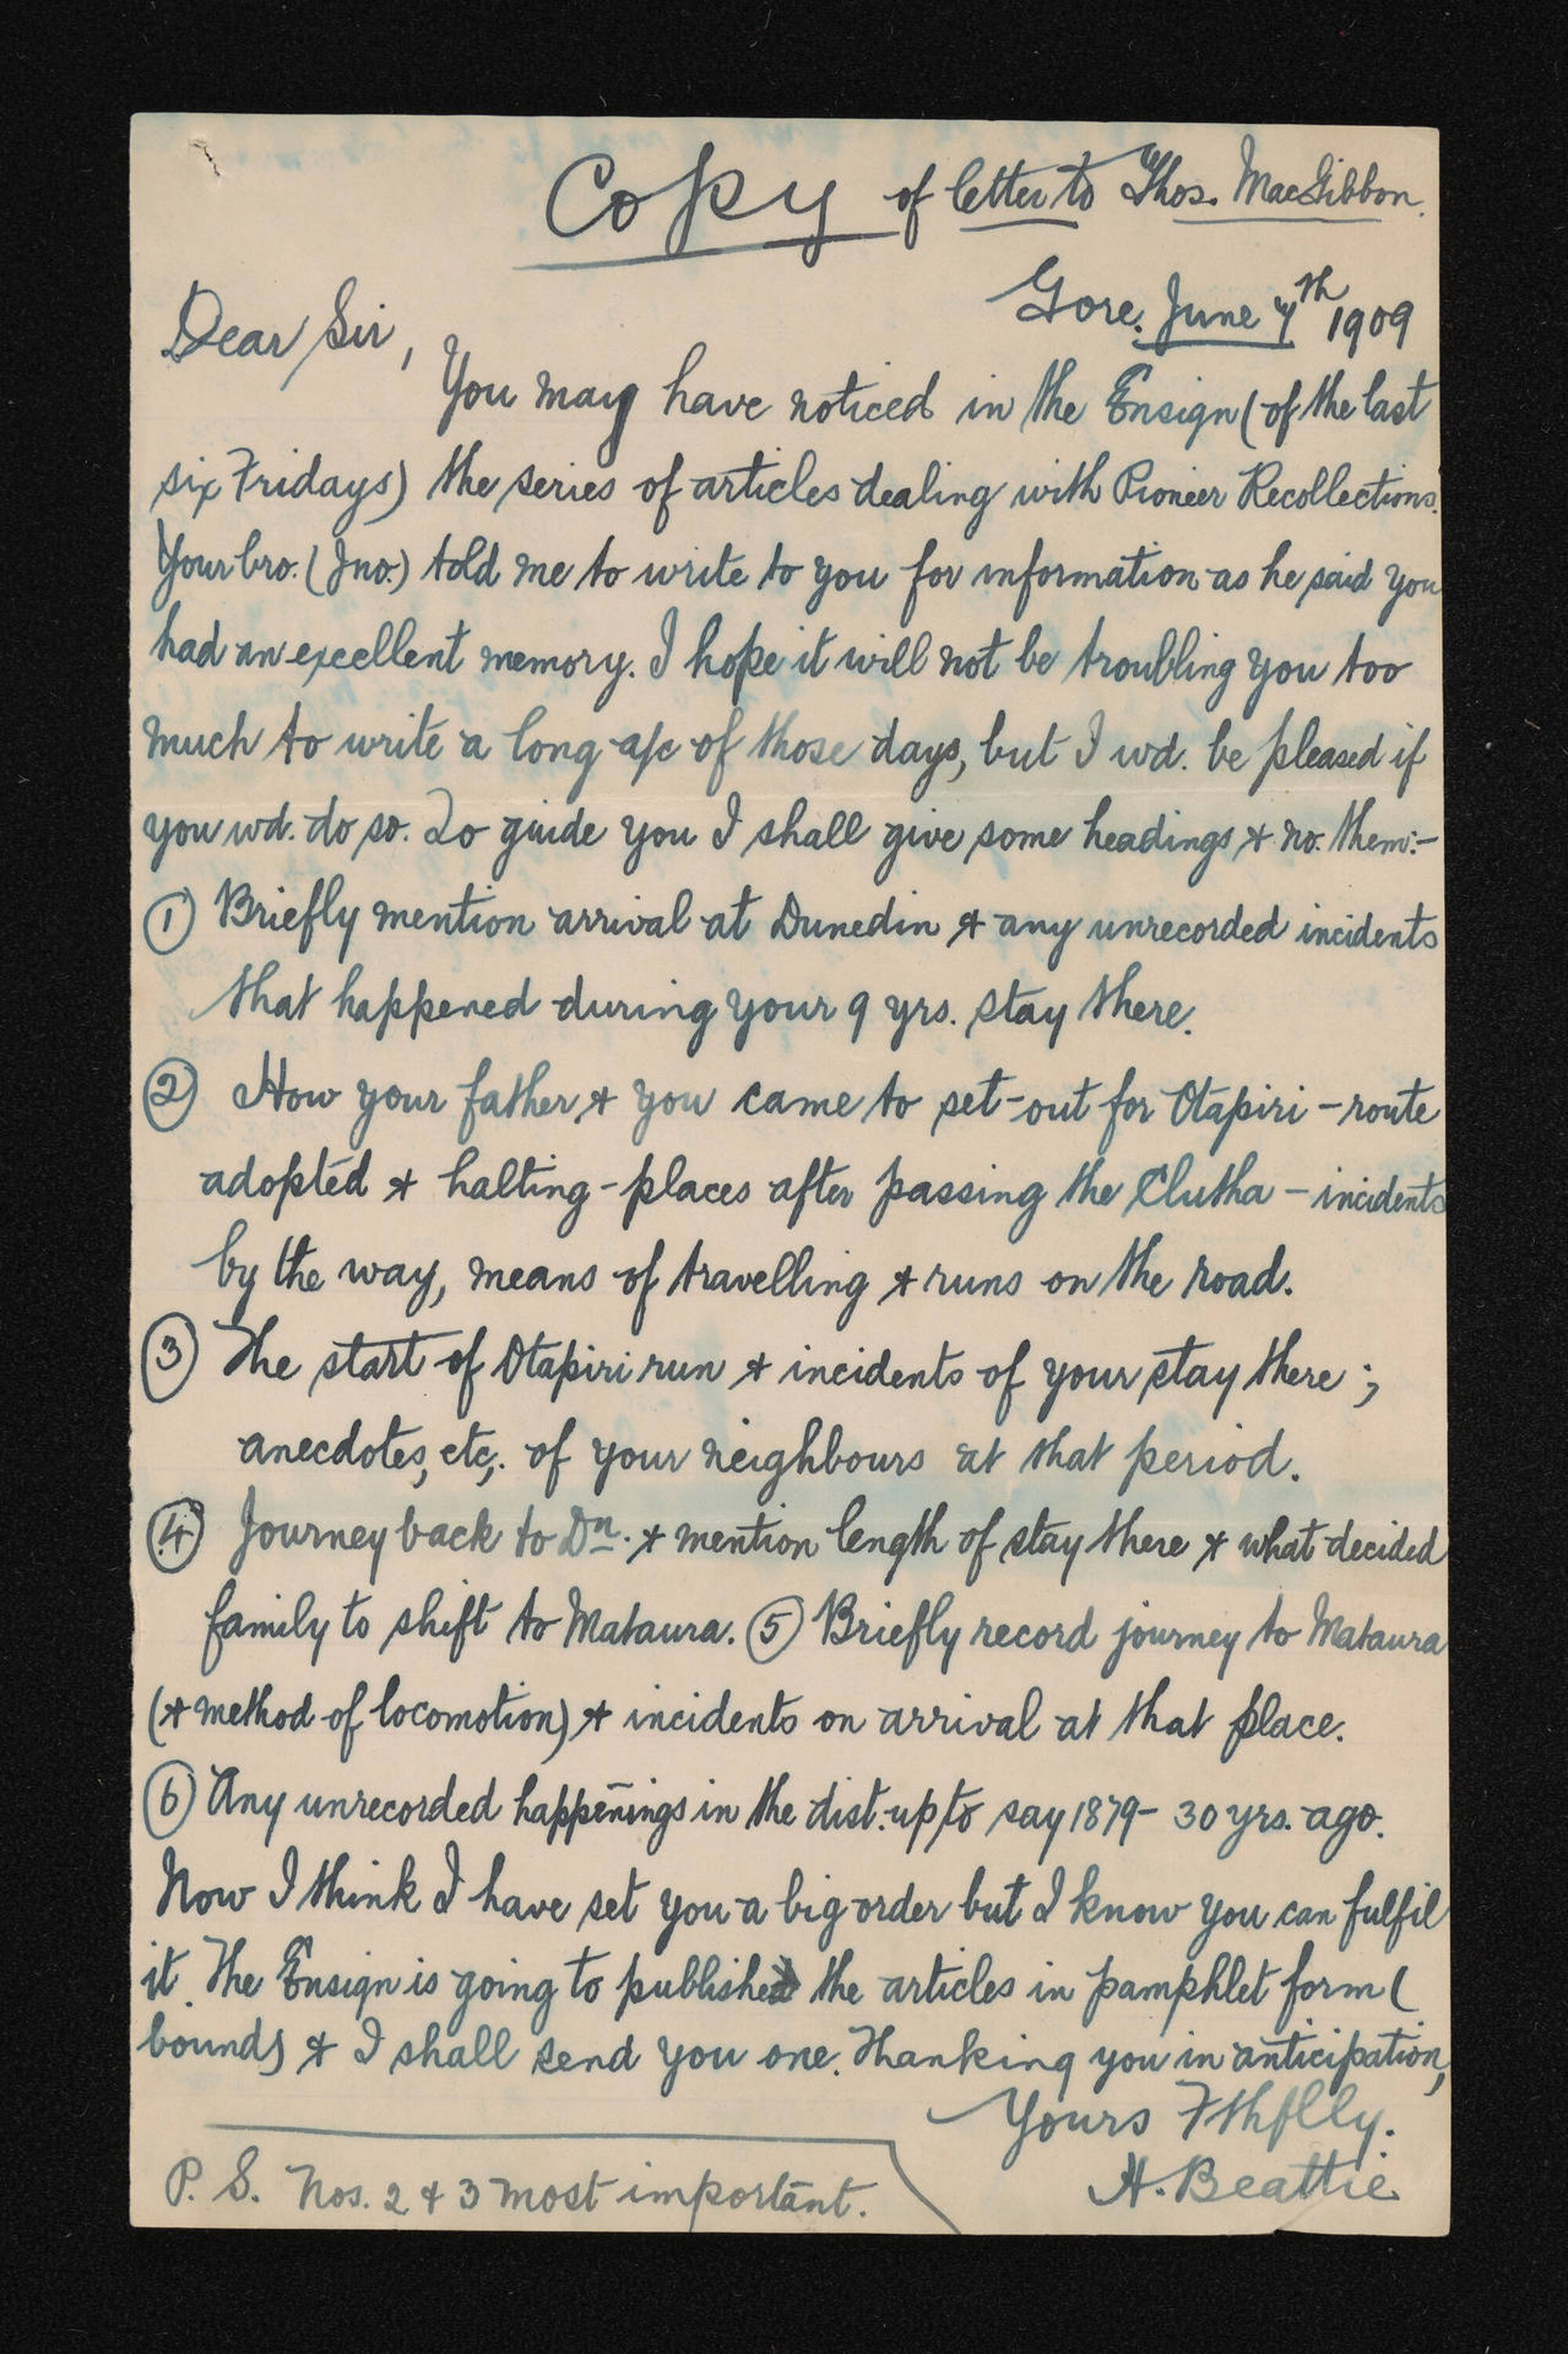 Copy of letter to Thos. MacGibbon.
Gore. June 7th 1909
Dear Sir,
You may have noticed in the Ensign (of the last
six Fridays) the series of articles dealing with Pioneer Recollections.
Your bro. (Jno.) told me to write to you for information as he said you
had an excellent memory. I hope it will not be troubling you too
much to write a long a/c of those days, but I wd. be pleased if
you wd. do so. To guide you I shall give some headings & no. them:-
① Briefly mention arrival at Dunedin & any unrecorded incidents
that happened during your 9 yrs. stay there.
② How your father & you came to set-out for Otapiri - route
adopted & halting-places after passing the Clutha - incidents
by the way, means of travelling & runs on the road.
③ The start of Otapiri run & incidents of your stay there;
anecdotes, etc,. of your neighbours at that period.
④ Journey back to Dn. & mention length of stay there & what decided
family to shift to Mataura. ⑤ Briefly record journey to Mataura
(& method of locomotion) & incidents on arrival at that place.
⑥ Any unrecorded happenings in the dist. up to say 1879 - 30 yrs. ago.
Now I think I have set you a big order but I know you can fulfil
it. The Ensign is going to publish the articles in pamphlet form (
bound) & I shall send you one. Thanking you in anticipation,
Yours Fthflly.
H. Beattie
P. S. Nos. 2 & 3 most important.